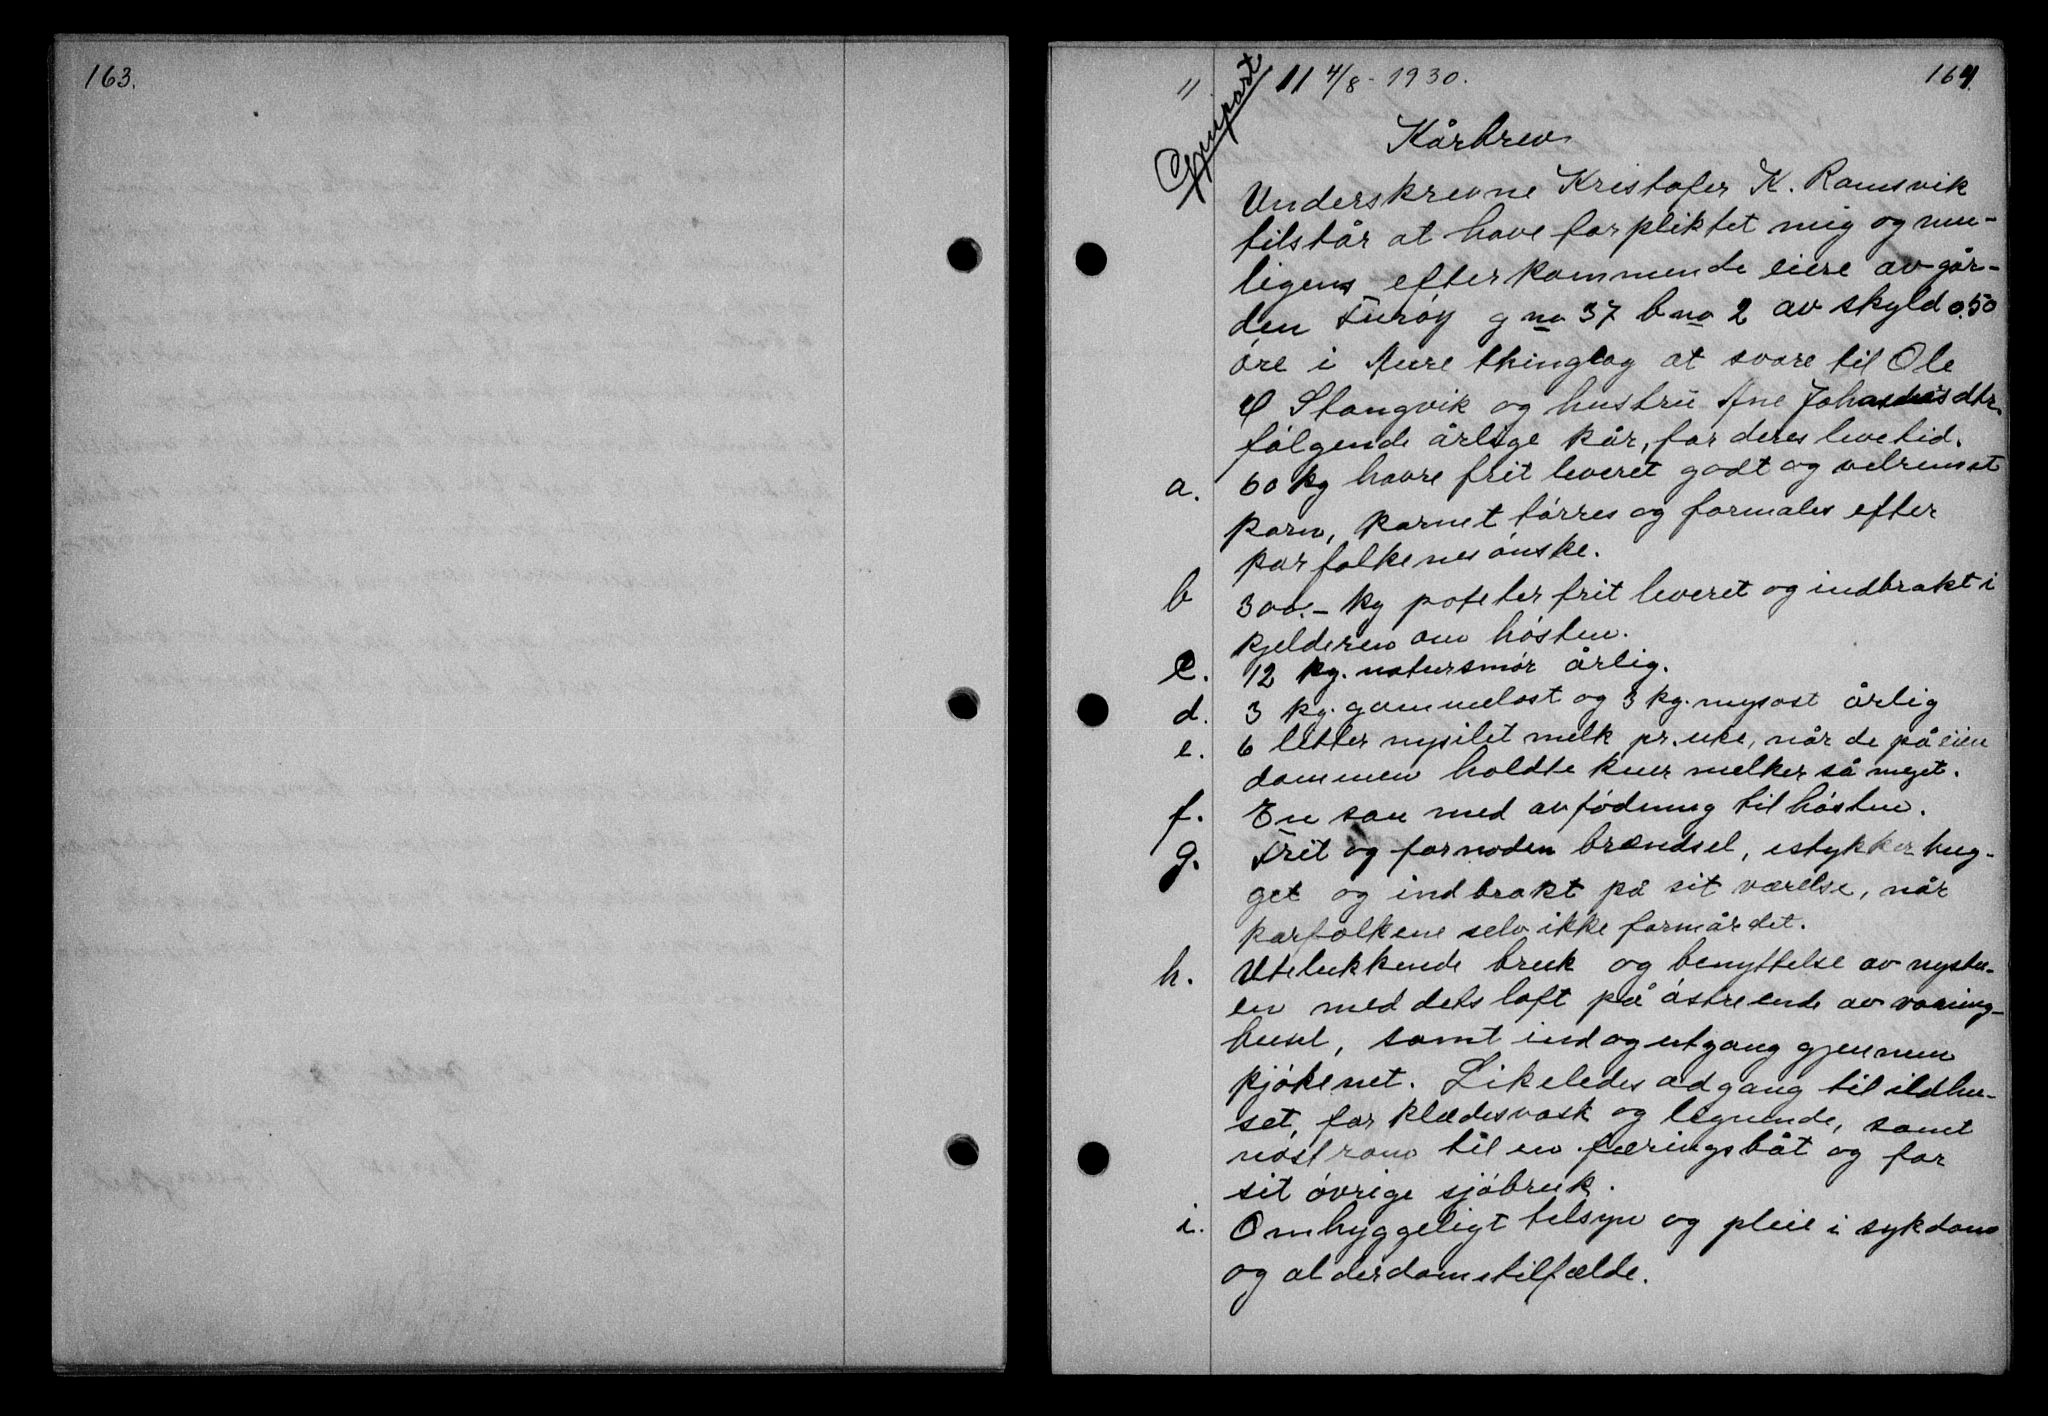 163.
11 11 4/8 - 1930.
164.
Gjenpart
Kårbrev
Underskrevne Kristofer K. Ramsvik
tilstår at have forpliktet mig og mu-
ligens efterkommende eiere av går-
den Furøy g no 37 b no 2 av skyld 0.50
øre i Aure thinglag at svare til Ole
Stangvik og hustru Ane Johansdtr.
følgende årlige kår, for deres levetid.
a. 60 kg havre frit leveret godt og velrenset
korn, kornet tørres og formales efter
karfolkenes ønske.
b 300.- kg poteter frit leveret og indbrakt i
kjelderen om høsten.
c. 12 kg. natursmør årlig.
d. 3 kg. gammelost og 3 kg. mysost årlig
e. 6 litter nysilet melk pr. uke, når de på eien
dommen holdte kuer melker så meget.
f. En sau med avfødning til høsten.
g. Frit og fornøden brændsel, istykker hug-
get og indbrakt på sit værelse, når
karfolkene selv ikke formår det.
h. Utelukkende bruk og benyttelse av nystu-
en med dets loft på østre ende av vaaning-
huset, samt ind og utgang gjennem
kjøkenet. Likeledes adgang til ildhu-
set, for klædesvask og lignende, samt
nøstrom til en færingsbåt og for
sit øvrige sjøbruk.
i. Omhyggeligt tilsyn og pleie i sykdoms
og alderdomstilfælde.